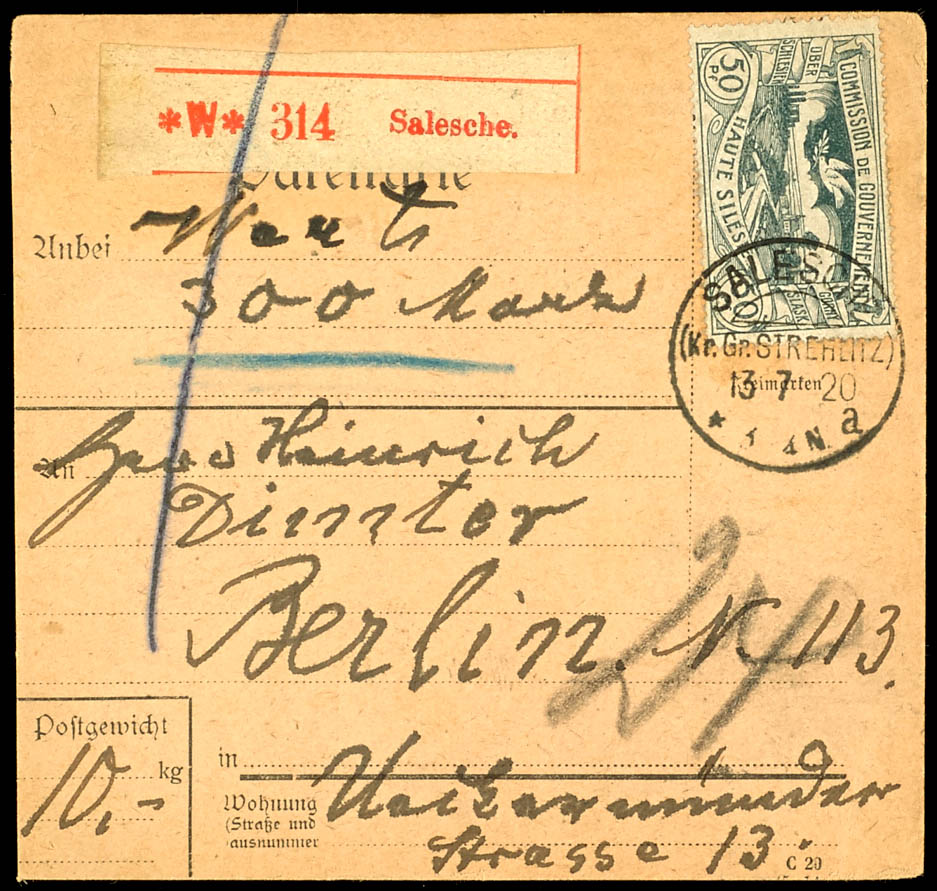 *W* 314 Salesche.
Paketkarte
Anbei Wert
300 Mark
An Herrn Heinrich
Dimter
Berlin. N. 113.
24
Postgewicht
10,- kg
in Ueckermünder
Wohnung
(Straße und
Hausnummer
Strasse 13.
C 20
COMMISSION DE GOUVERNEMENT
HAUTE SILESIE
OBER
SCHLESIEN
50
Pf
GÓRNY
ŚLĄSK
50
SALESCHE
(Kr. Gr. STREHLITZ)
13 7 20
* 3-4 N. a
Freimarken